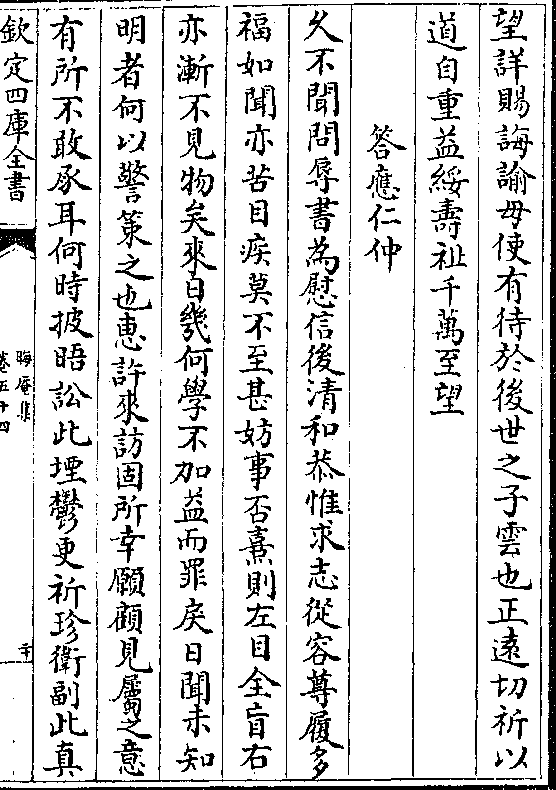 望詳賜誨諭毋使有待於後世之子雲也正遠切祈以
道自重益綏壽祉千萬至望
答應仁仲
久不聞問辱書為慰信後清和恭惟求志從容尊履多
福如聞亦苦目疾莫不至甚妨事否熹則左目全盲右
亦漸不見物矣來日幾何學不加益而罪戾日聞未知
明者何以警策之也惠許來訪固所幸願顧見屬之意
有所不敢承耳何時披晤訟此堙鬱更祈珍衛副此真
欽定四庫全書
晦庵集
卷五十四